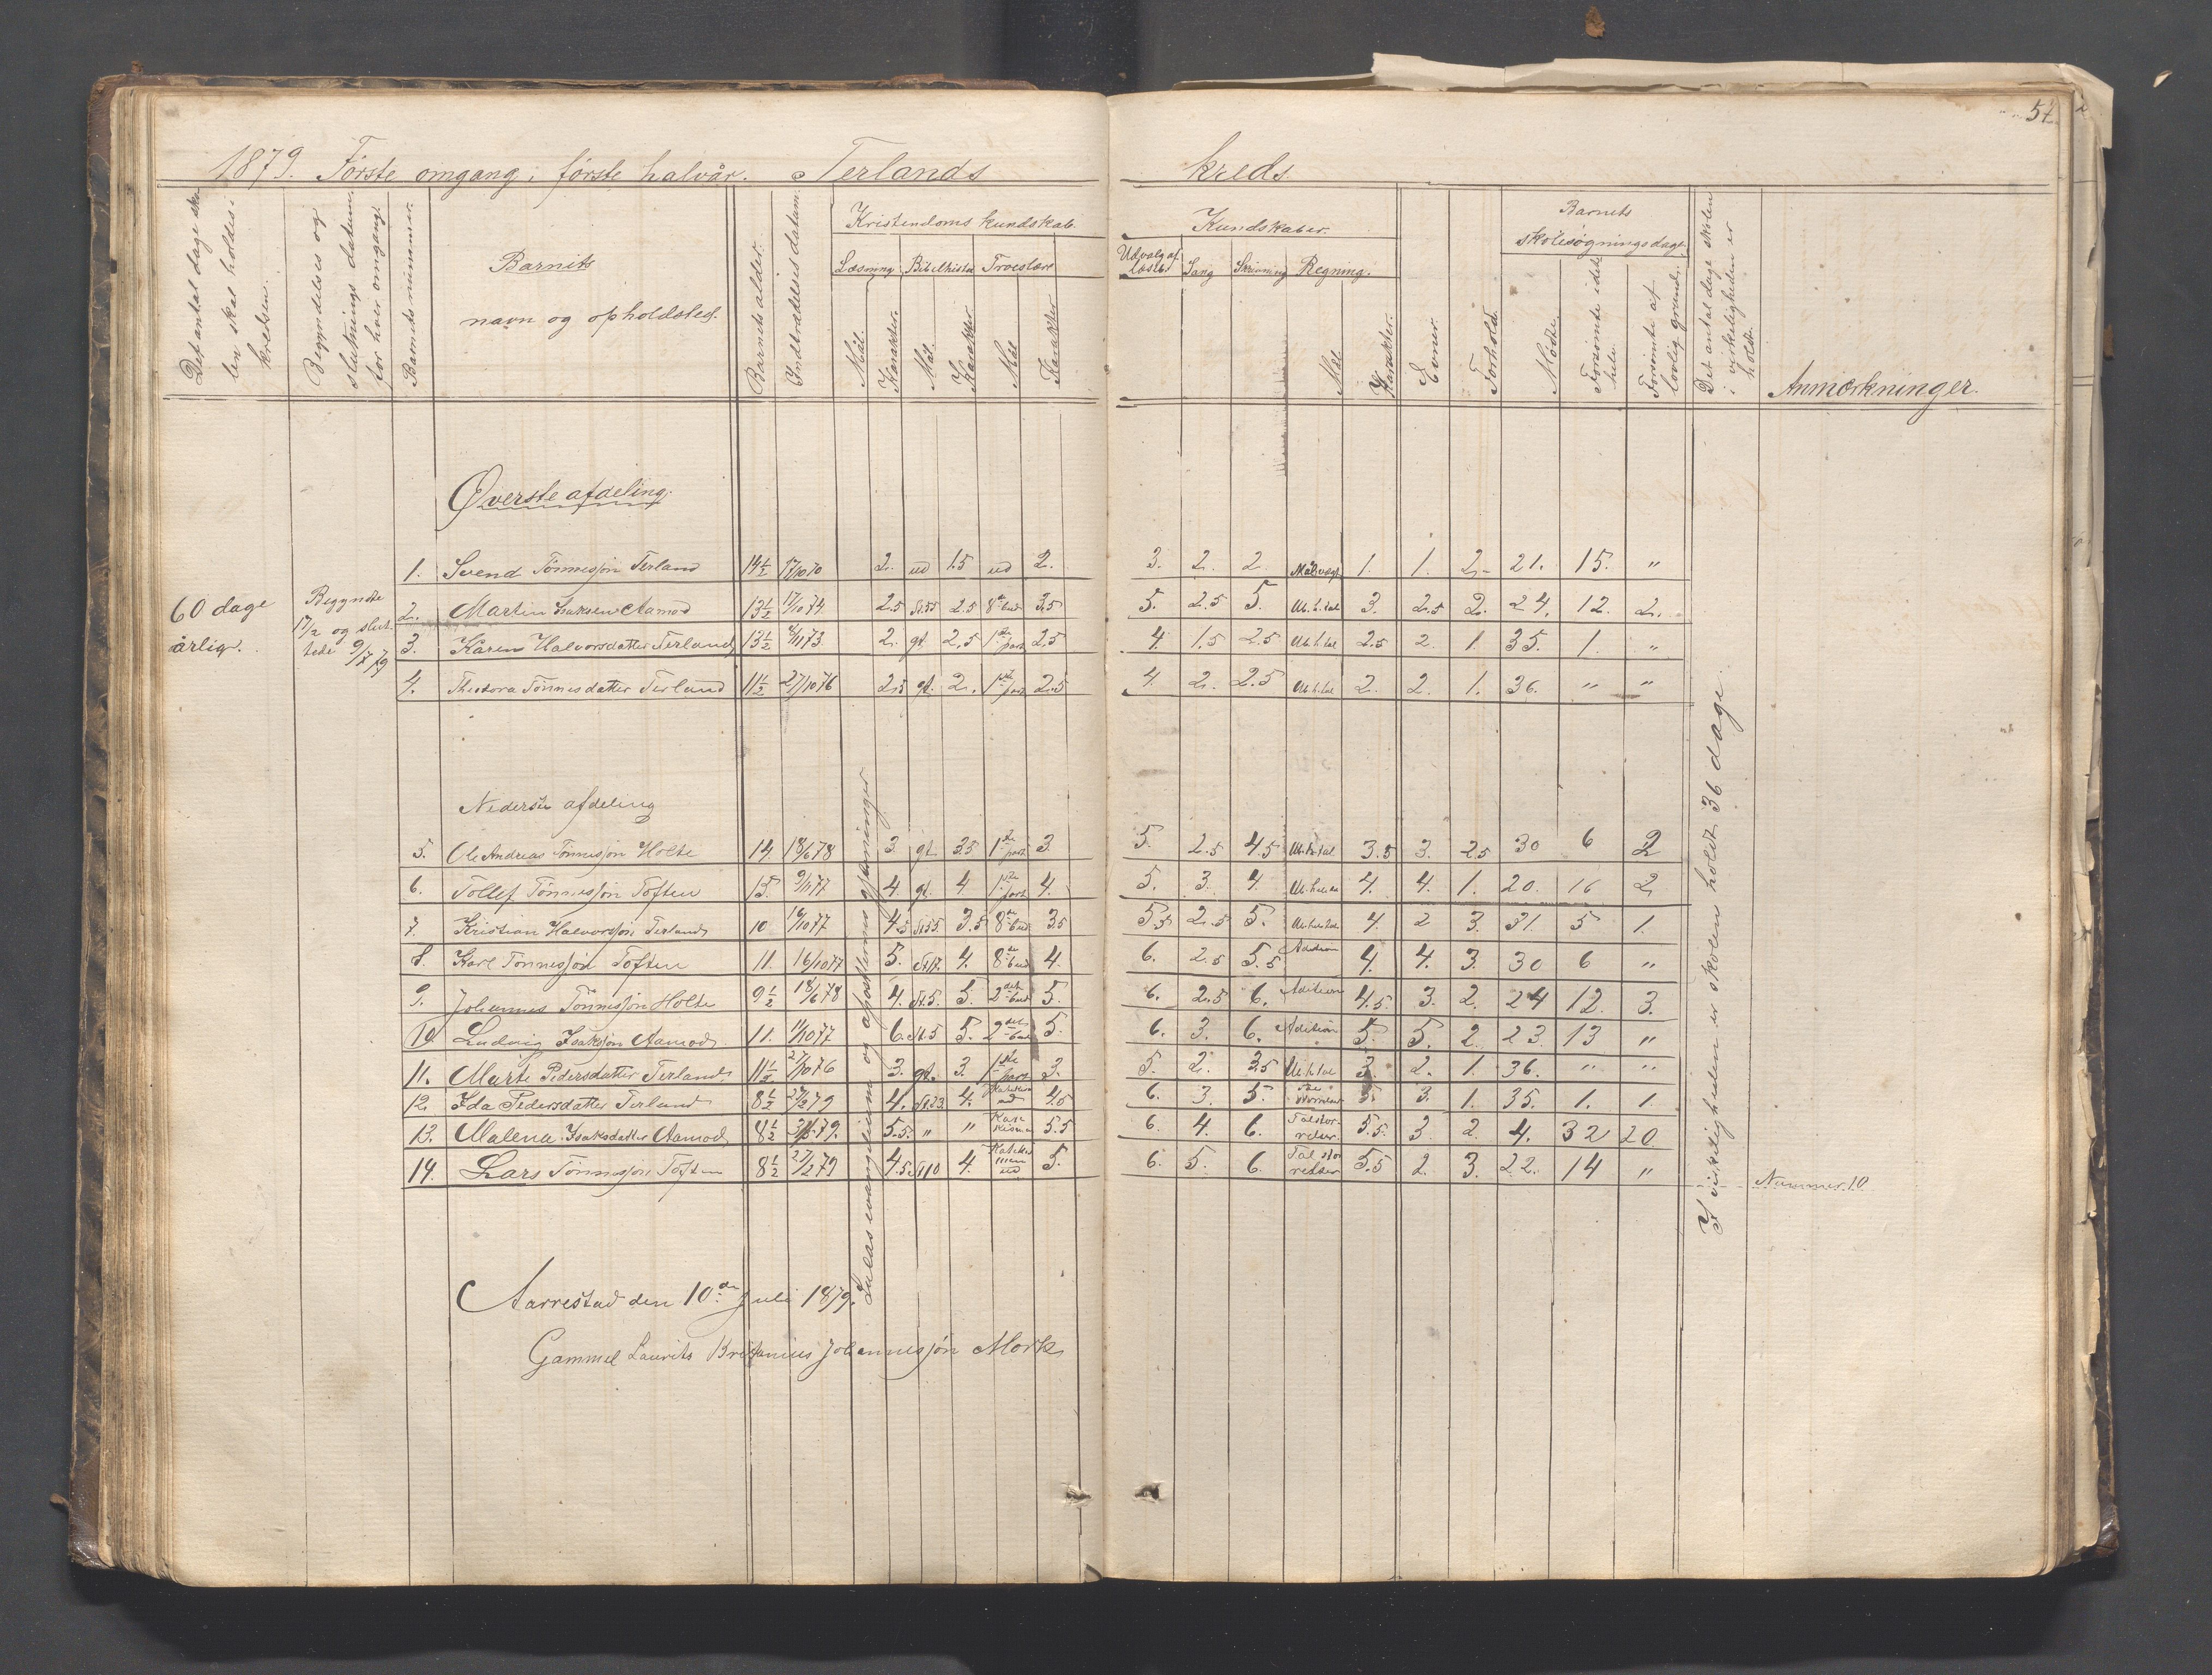 57
1879. Første omgang, første halvår. Terlands kreds.
Det antal dage skolen skal holdes i kredsen.
Begyndelses og slutnings datum for hver omgang.
Barnets nummer.
Barnets navn og opholdsted.
Barnets alder.
Indtrædelses datum.
Kristendoms kundskab.
Læsning Bibelhistor Troeslære
Mål. Karakter. Mål. Karakter Mål Karakter
Kundskaber.
Udvalg af læseb. Sang Skrivning Regning.
Mål Karakter.
Evner.
Forhold.
Barnets skolesøgningsdage.
Møde.
Forsømte i det hele.
Forsømte af lovlig grund.
Det antal dage skolen i virkeligheden er holdt.
Anmærkninger.
Øverste afdeling.
60 dage årlig.
Begyndte 17/2 og sluttede 9/7 79
1. Svend Tönnesjøn Terland 14½ 17/10 70 2. ud 1.5 ud 2. 3. 2. 2 1. 1. 2. 21. 15. "
2. Martin Isaksen Aamod 13½ 17/10 74 2.5 St.55 2.5 8de bud 3.5 5. 2.5 5. Ub. h. tal 3. 2.5 2. 24. 12. 2.
3. Karen Halvorsdatter Terland 13½ 4/11 73 2. gt. 2.5 1ste part 2.5 4. 1.5 2.5 Ub. h. tal 2.5 2. 1. 35. 1. "
4. Theodora Tönnesdatter Terland 11½ 27/10 76 2.5 gt. 2. 1ste part 2.5 4 2. 2.5 Ub. h. tal 2. 2. 1. 36. " "
Nederste afdeling
5. Ole Andreas Tönnesjøn Holte 14. 18/6 78 3 gt. 3.5 1ste part 3 5. 2.5 4.5 Ub. h. tal 3.5 3. 2.5 30 6 2
6. Tollef Tønnesjøn Toften 13. 9/11 77 4. gt. 4. 1ste part 4. 5. 3. 4. 4. 4. 1. 20. 16 2
7. Kristian Halvorsjøn Terland 10 16/10 77 4.5 St.55 3.5 8de bud 3.5 5.5 2.5 5. Ub. h. tal 4. 2 3. 31. 5 1.
8. Karl Tönnesjøn Toften 11. 16/10 77 5. St.17. 4. 8de bud 4. 6. 2.5 5.5 Adition 4. 4. 3. 30 6 "
9. Johannes Tönnesjøn Holte 9½ 18/6 78 4. St.5. 5. 2det bud 5. 6. 2.5 6. Adition 4.5. 3. 2. 24 12. 3.
10 Ludvig Isaksjøn Aamod. 11. 11/10 77 6. St.5 5. 2det bud 5. 6. 3. 6. Adition 5. 5. 2. 23. 13 "
11. Marte Pedersdatter Terland. 11½ 27/10 76 3. gt. 3. 1ste part 3. 5. 2. 3.5 Ub. h. tal 3. 2. 1. 36. " "
12. Ida Pedersdatter Terland 8½ 27/2 79 4. St.23. 4. 4.5 6. 3. 5. 5. 3. 1. 35. 1. 1.
13. Malena Isaksdatter Aamod. 8½ 79. 5.5. " " 5.5 6. 4. 6. Talstørrelser. 5.5. 3. 2. 4. 32 20.
14. Lars Tönnesjøn Toften 8½ 27/2 79 4.5 St.10 4. 5. 6. 5. 6. Tal størrelser 5.5 2. 3. 22. 14 "
Nummer 10
Lukas evangelium og apostlernes gjerninger
I virkeligheden er skolen holdt 36 dage.
Aarrestad den 10de Juli 1879.
Gammel Laurits Johannesjøn Mork